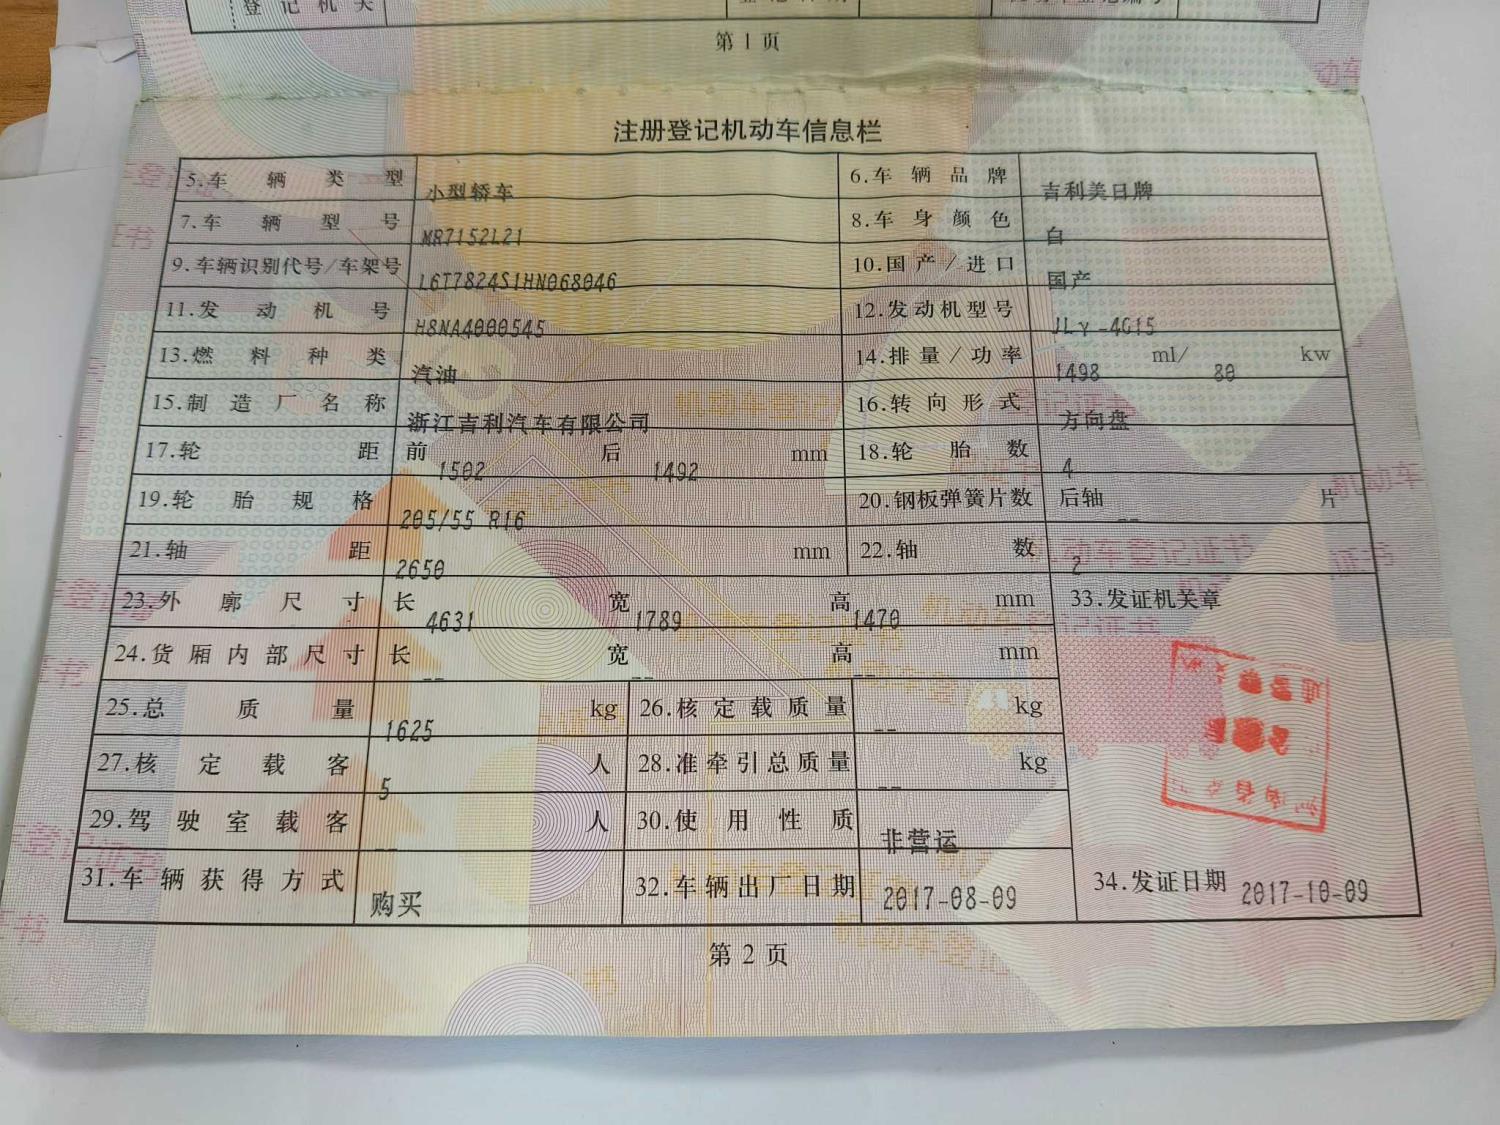 登记机关
第1页
注册登记机动车信息栏
5.车辆类型 小型轿车 6.车辆品牌 吉利美日牌
7.车辆型号 MR7152L21 8.车身颜色 白
9.车辆识别代号/车架号 L6T7824S1HN068046 10.国产/进口 国产
11.发动机号 H8NA4000545 12.发动机型号 JLγ-4G15
13.燃料种类 汽油 14.排量/功率 1498 ml/ 80 kw
15.制造厂名称 浙江吉利汽车有限公司 16.转向形式 方向盘
17.轮距 前 1502 后 1492 mm 18.轮胎数 4
19.轮胎规格 205/55 R16 20.钢板弹簧片数 后轴 -- 片
21.轴距 2650 mm 22.轴数 2
23.外廓尺寸 长 4631 宽 1789 高 1470 mm 33.发证机关章
24.货厢内部尺寸 长 -- 宽 -- 高 -- mm
25.总质量 1625 kg 26.核定载质量 -- kg
27.核定载客 5 人 28.准牵引总质量 -- kg
29.驾驶室载客 -- 人 30.使用性质 非营运
31.车辆获得方式 购买 32.车辆出厂日期 2017-08-09 34.发证日期 2017-10-09
第2页